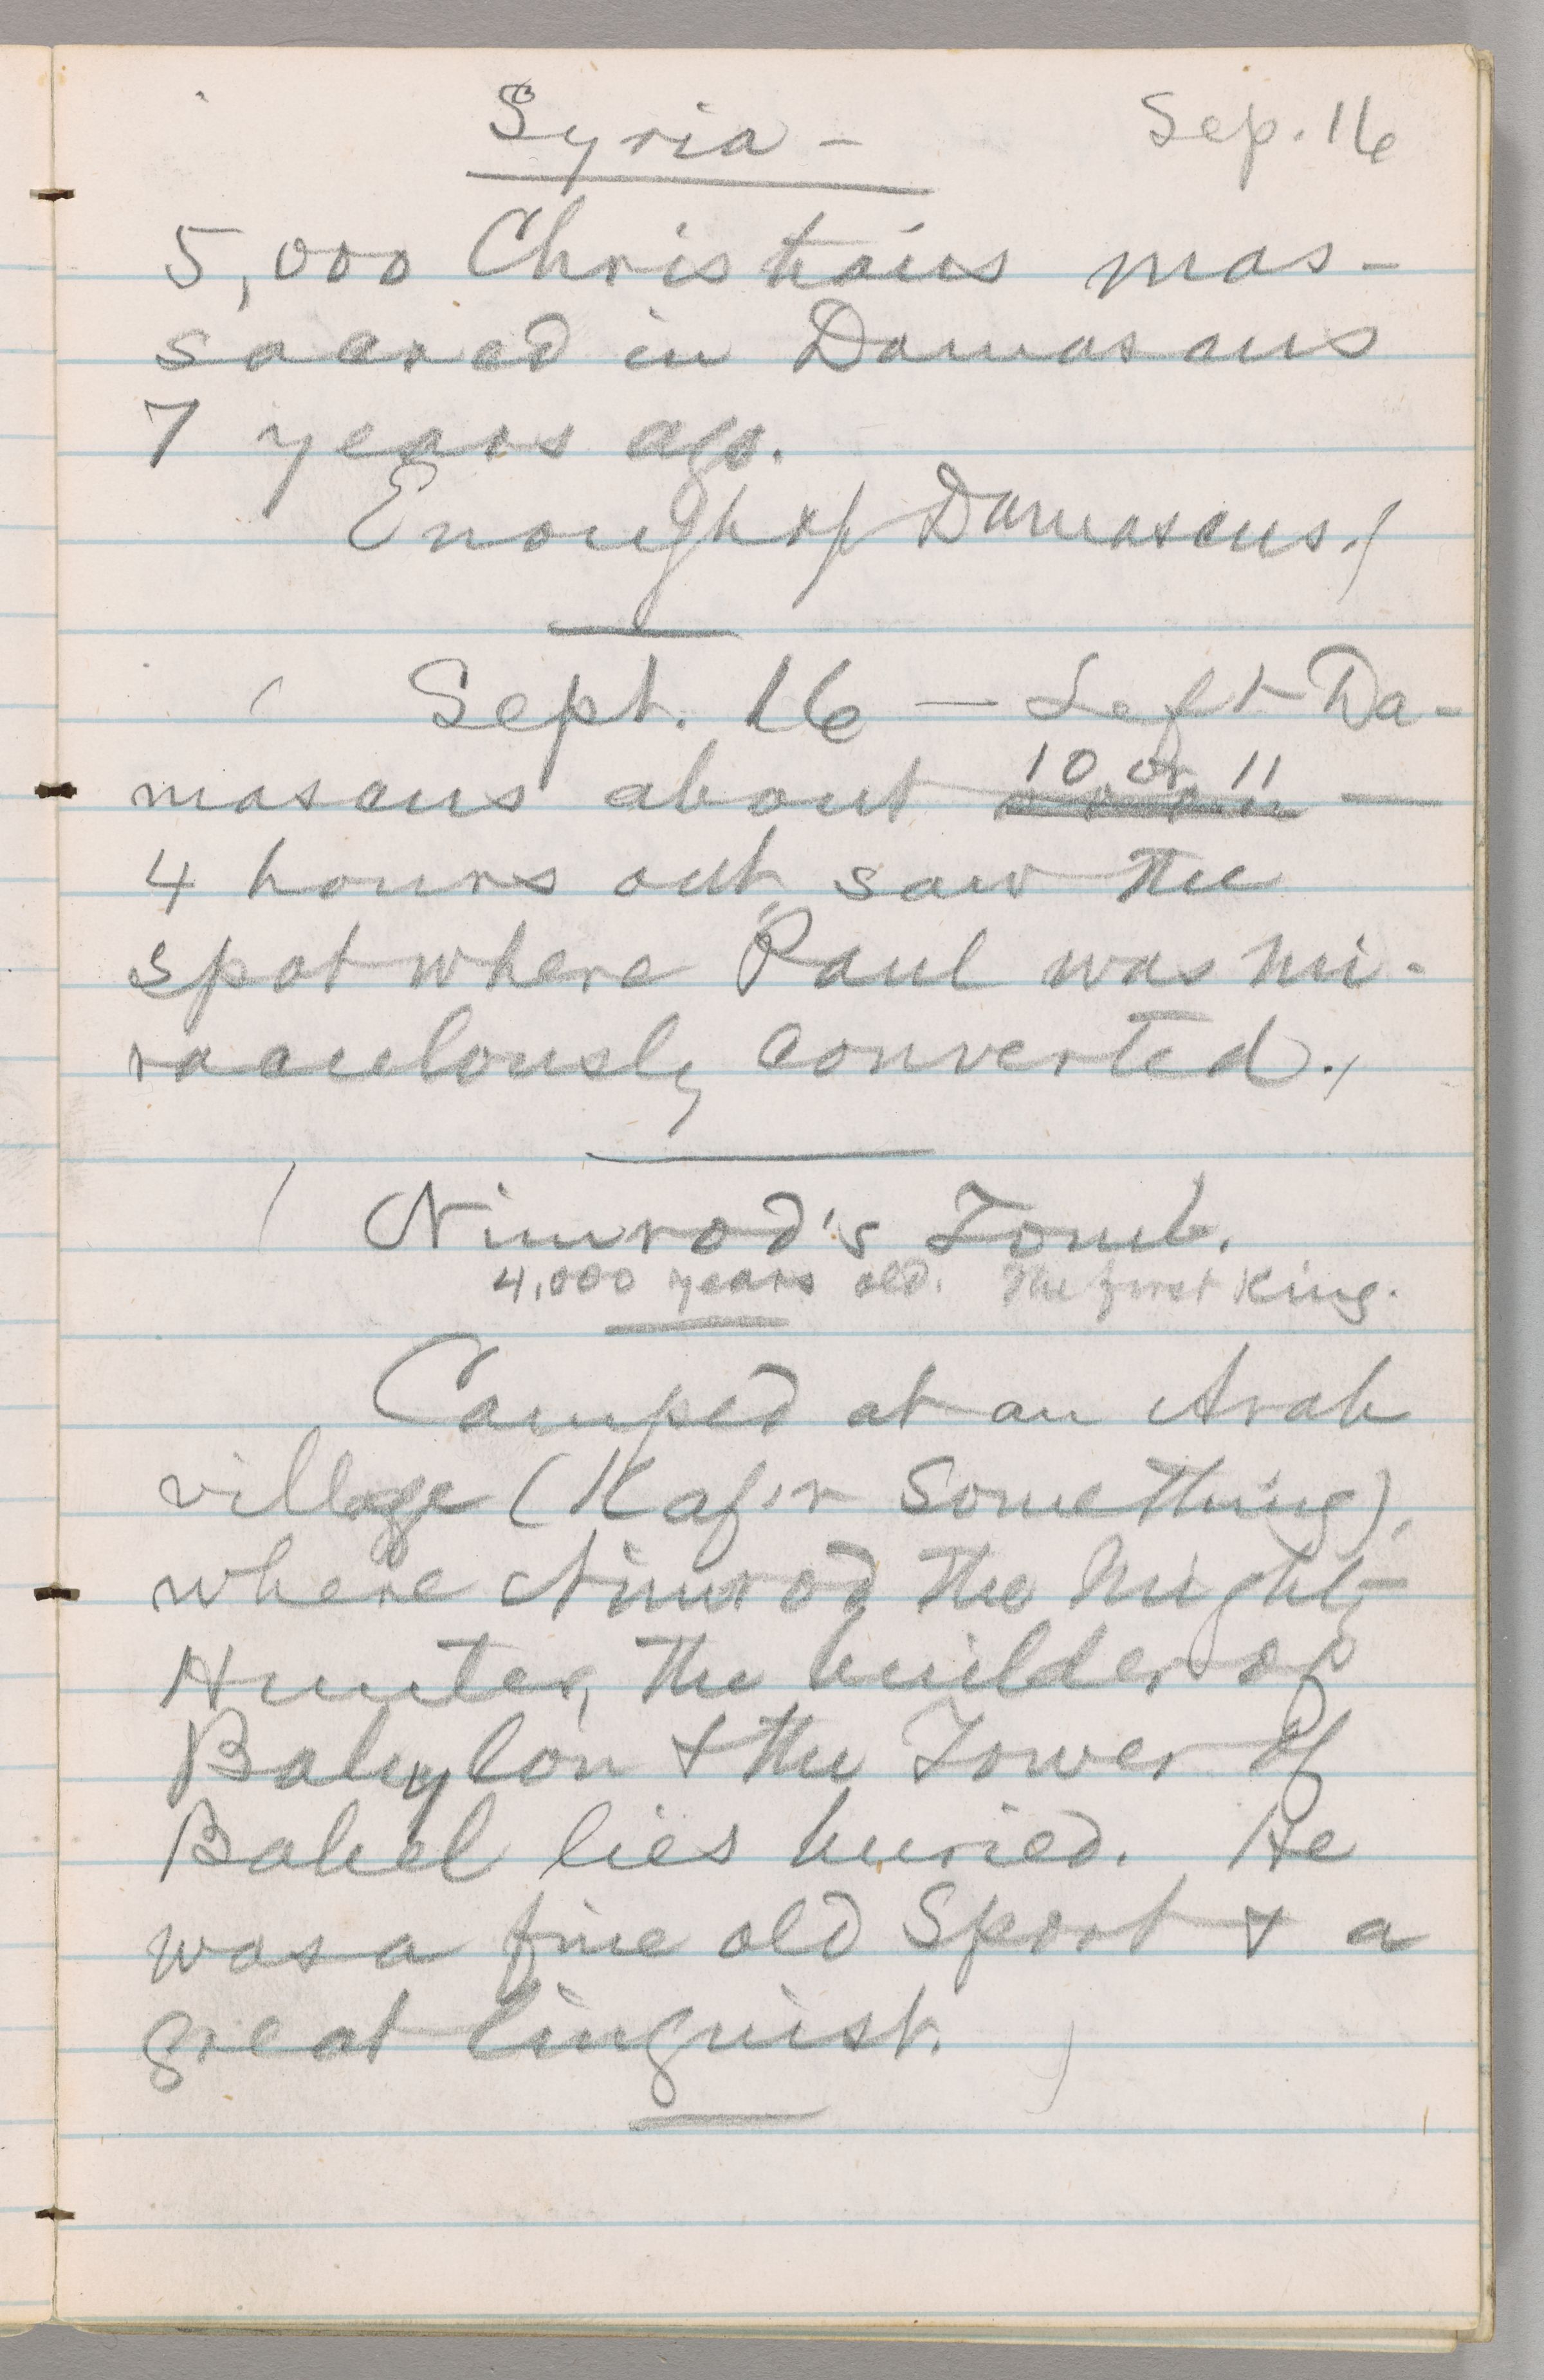 Syria -
Sep. 16
5,000 Christains mas-
sacred in Damascus
7 years ago.
Enough of Damascus.)
( Sept. 16 — Left Da-
10 or 11
mascus about noon —
4 hours out, saw the
spot where Paul was mi-
raculously converted.)
( Nimrod's Tomb.
4,000 years old. The first King.
Camped at an Arab
village (Kafr Something),
where Nimrod the Mighty
Hunter, the builder of
Babylon & the Tower of
Babel lies buried. He
was a fine old Sport & a
great linguist. )